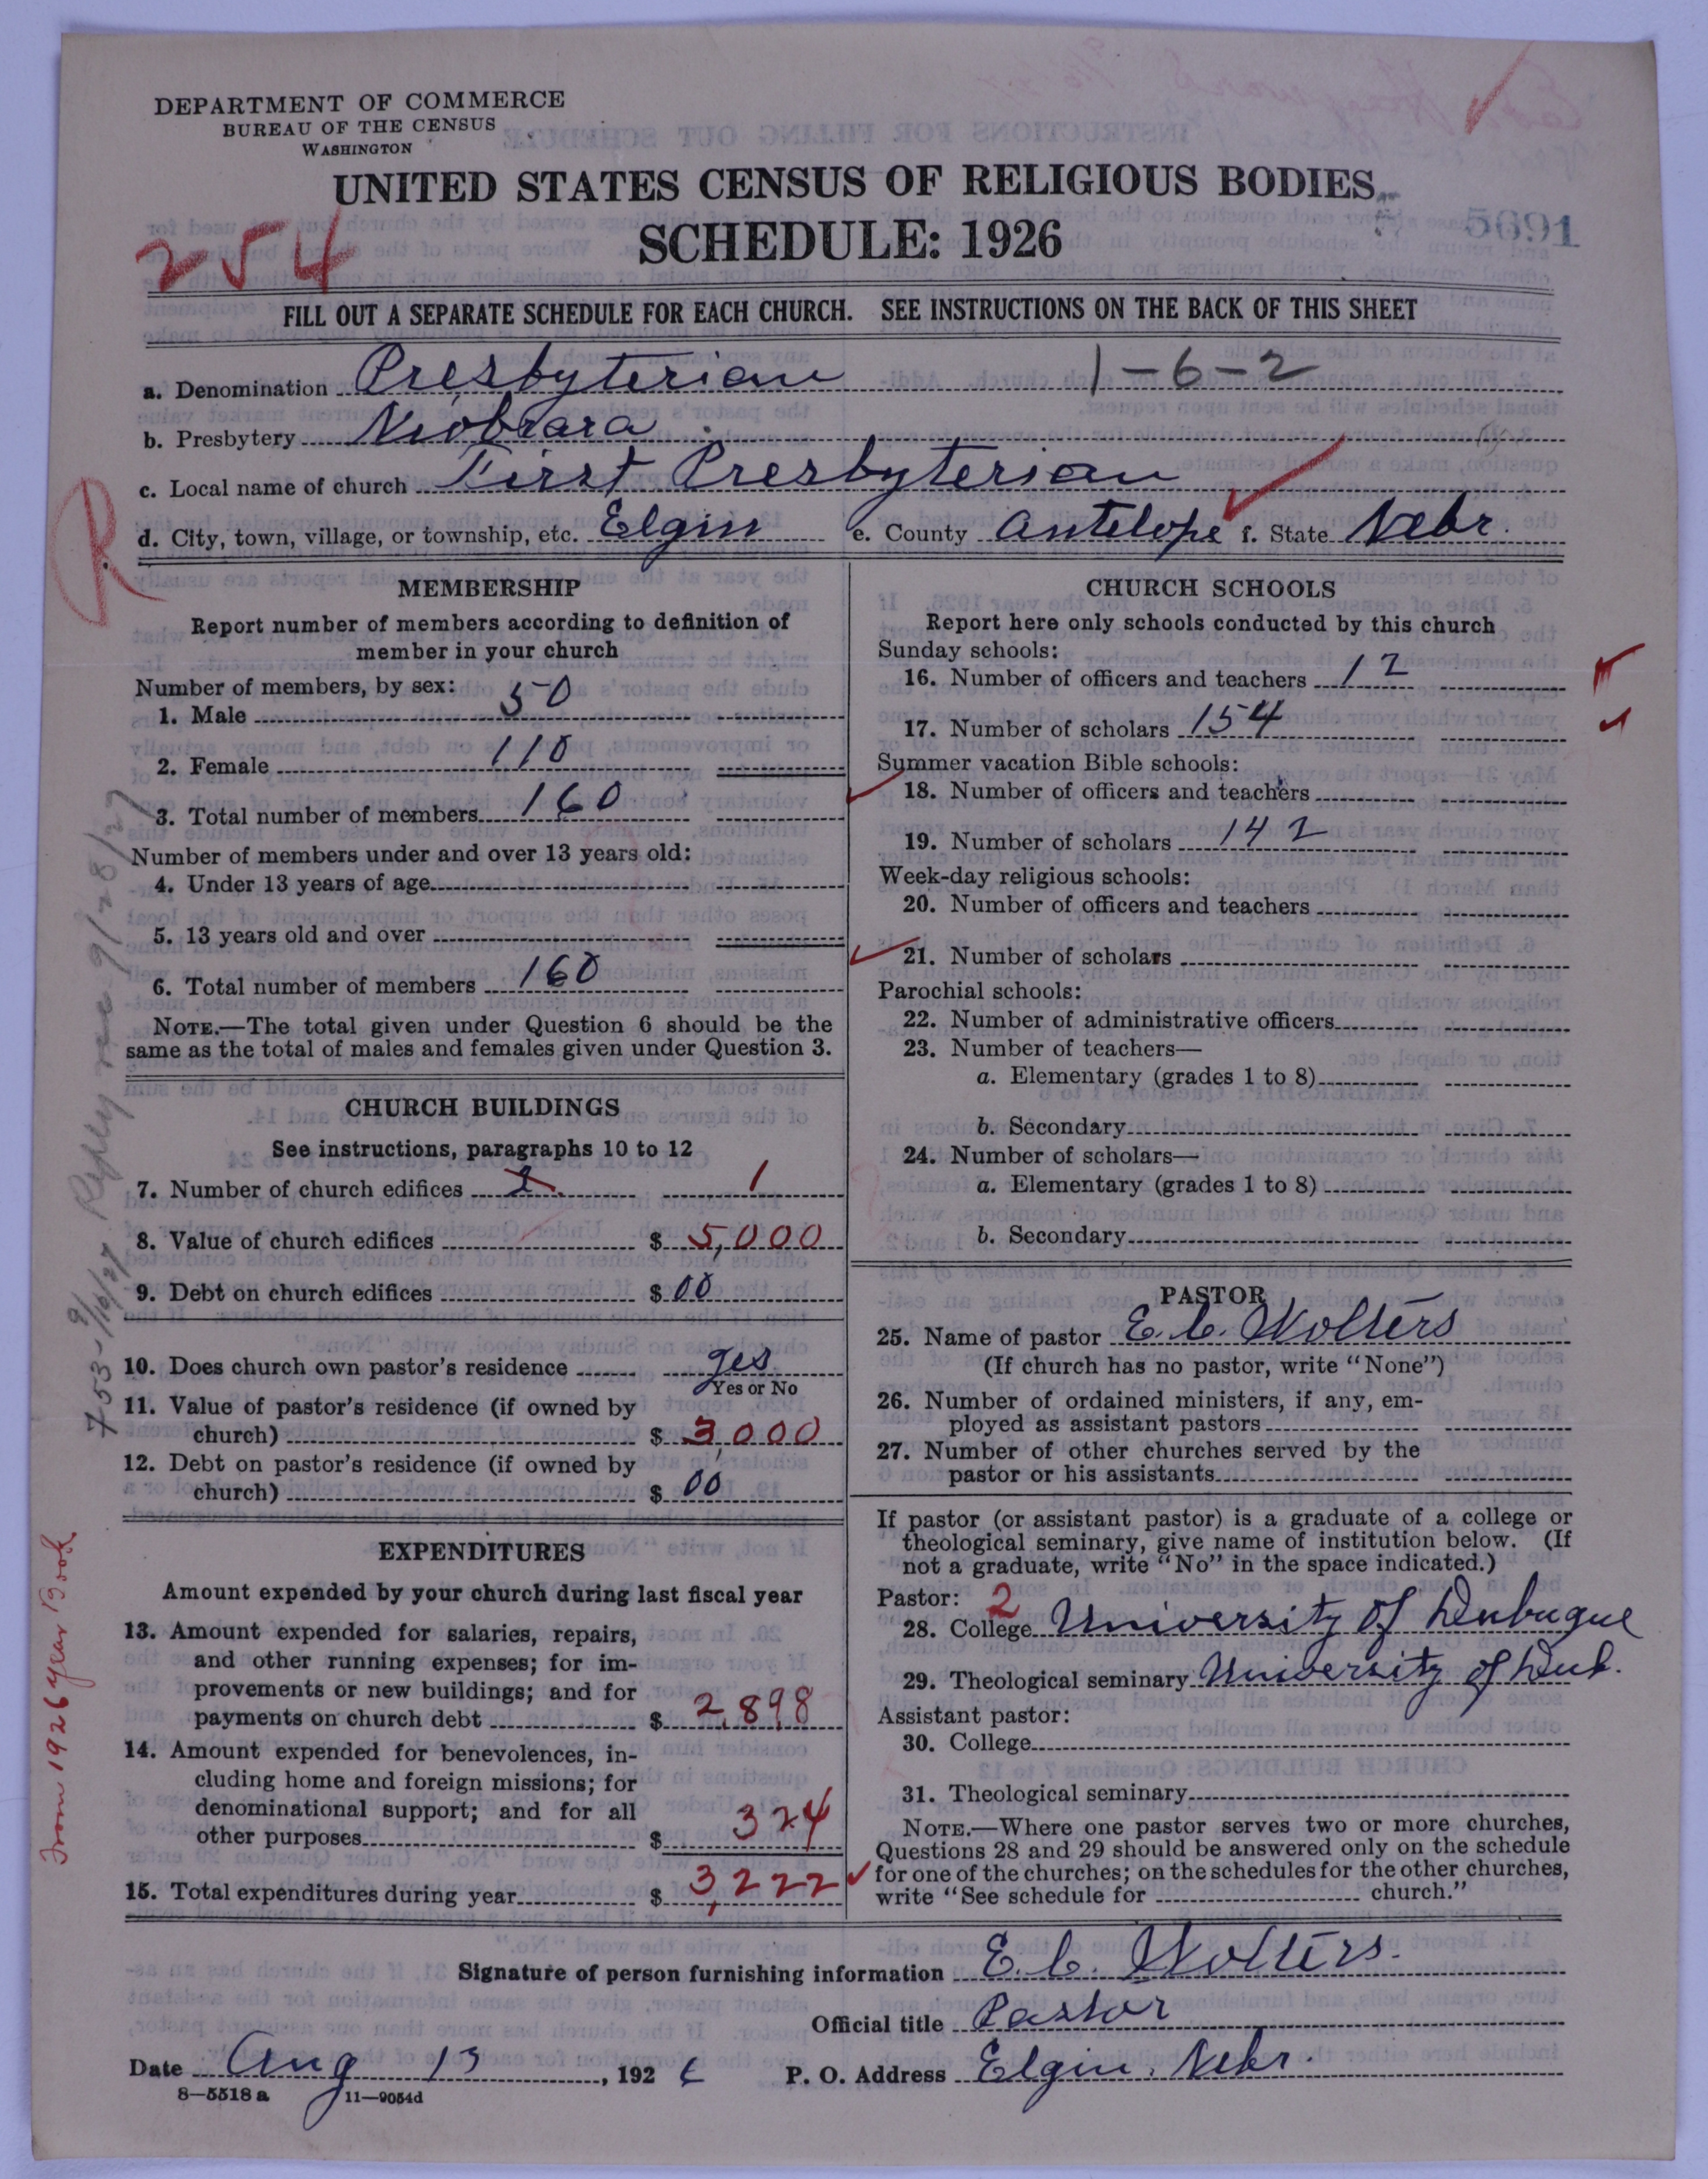 DEPARTMENT OF COMMERCE
BUREAU OF THE CENSUS
WASHINGTON
UNITED STATES CENSUS OF RELIGIOUS BODIES
SCHEDULE: 1926
5691
254
FILL OUT A SEPARATE SCHEDULE FOR EACH CHURCH. SEE INSTRUCTIONS ON THE BACK OF THIS SHEET
a. Denomination Presbyterian 1-6-2
b. Presbytery Niobrara
c. Local name of church First Presbyterian
d. City, town, village, or township, etc. Elgin e. County Antelope f. State Nebr.
R
MEMBERSHIP
Report number of members according to definition of
member in your church
Number of members, by sex:
1. Male 50
2. Female 110
3. Total number of members 160
Number of members under and over 13 years old:
4. Under 13 years of age
5. 13 years old and over
6. Total number of members 160
NOTE.—The total given under Question 6 should be the
same as the total of males and females given under Question 3.
CHURCH BUILDINGS
See instructions, paragraphs 10 to 12
7. Number of church edifices 1
8. Value of church edifices $ 5,000
9. Debt on church edifices $ 00
10. Does church own pastor's residence yes
Yes or No
11. Value of pastor's residence (if owned by
church) $ 3,000
12. Debt on pastor's residence (if owned by
church) $ 00
EXPENDITURES
Amount expended by your church during last fiscal year
13. Amount expended for salaries, repairs,
and other running expenses; for im-
provements or new buildings; and for
payments on church debt $ 2,898
14. Amount expended for benevolences, in-
cluding home and foreign missions; for
denominational support; and for all
other purposes $ 324
15. Total expenditures during year $ 3,222
753-9/16/27 Reply rec 9/28/27
From 1926 year Book
CHURCH SCHOOLS
Report here only schools conducted by this church
Sunday schools:
16. Number of officers and teachers 12
17. Number of scholars 154
Summer vacation Bible schools:
18. Number of officers and teachers
19. Number of scholars 142
Week-day religious schools:
20. Number of officers and teachers
21. Number of scholars
Parochial schools:
22. Number of administrative officers
23. Number of teachers—
a. Elementary (grades 1 to 8)
b. Secondary
24. Number of scholars—
a. Elementary (grades 1 to 8)
b. Secondary
PASTOR
25. Name of pastor E. C. Wolters
(If church has no pastor, write "None")
26. Number of ordained ministers, if any, em-
ployed as assistant pastors
27. Number of other churches served by the
pastor or his assistants
If pastor (or assistant pastor) is a graduate of a college or
theological seminary, give name of institution below. (If
not a graduate, write "No" in the space indicated.)
Pastor: 2
28. College University of Dubuque
29. Theological seminary University of Dub.
Assistant pastor:
30. College
31. Theological seminary
NOTE.—Where one pastor serves two or more churches,
Questions 28 and 29 should be answered only on the schedule
for one of the churches; on the schedules for the other churches,
write "See schedule for church."
Signature of person furnishing information E. C. Wolters.
Official title Pastor
Date Aug 13, 1926 P. O. Address Elgin, Nebr.
8—5518 a 11—9054d